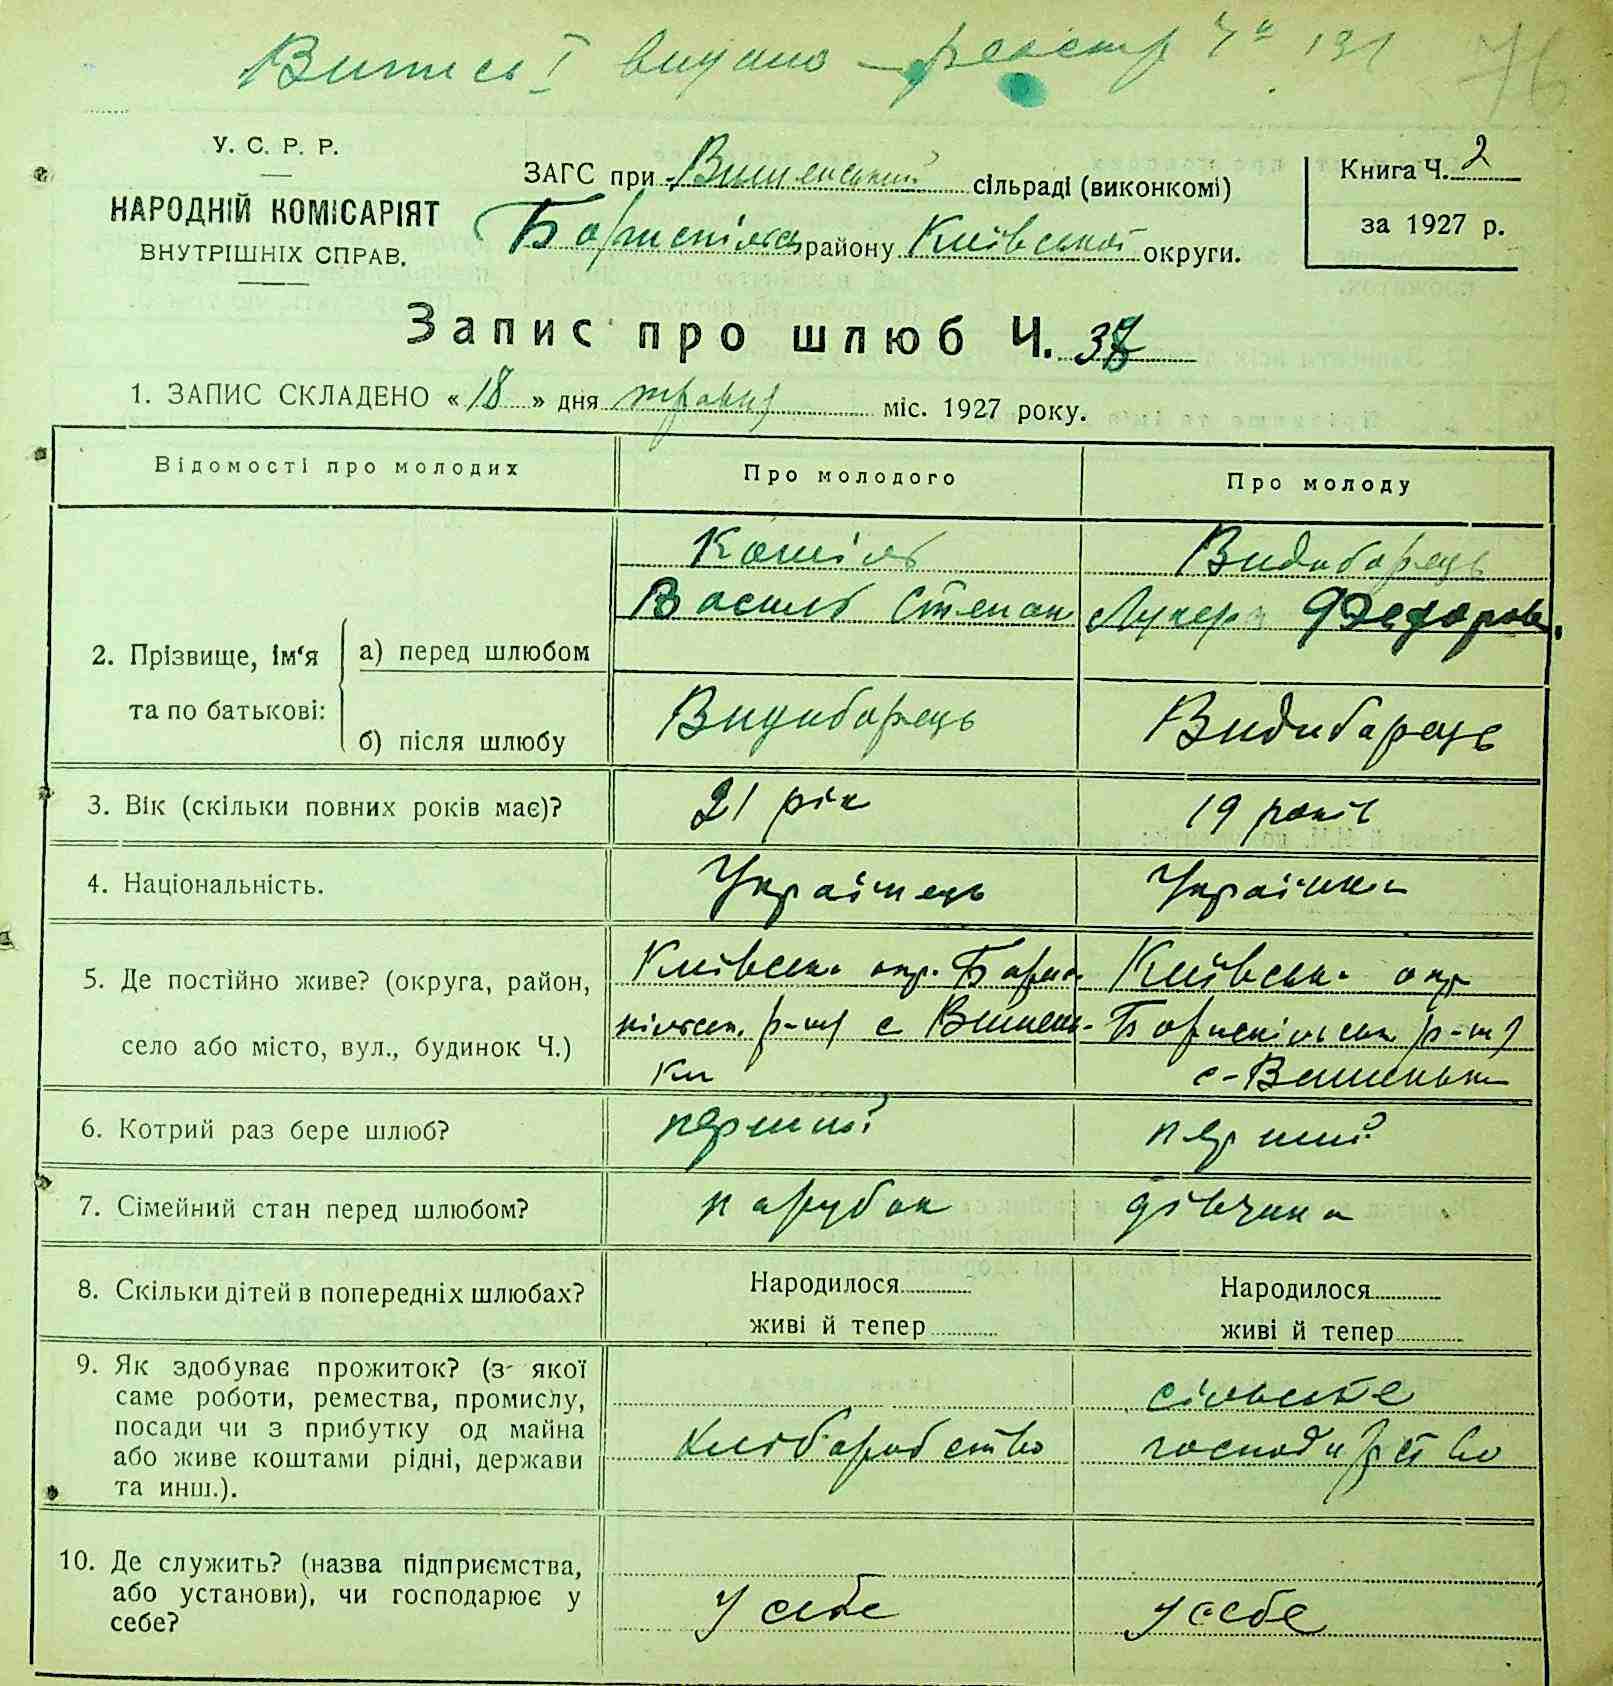 Випись I видано – реєстр Ч" 131
76
У. С. Р. Р.
НАРОДНІЙ КОМІСАРІЯТ
ВНУТРІШНІХ СПРАВ.
ЗАГС при Вишенській сільраді (виконкомі)
Бориспільськ району Київської округи.
Книга Ч. 2
за 1927 р.
Запис про шлюб Ч.
1. ЗАПИС СКЛАДЕНО « 18 » дня травня міс. 1927 року.
Відомості про молодих
Про молодого
Про молоду
2. Прізвище, ім'я та по батькові:
а) перед шлюбом
Василь Степан
Видиборець
Лукера Федоров.
б) після шлюбу
Видиборець
Видиборець
3. Вік (скільки повних років має)?
21 рік
19 років
4. Національність.
Українець
Українка
5. Де постійно живе? (округа, район,
село або місто, вул., будинок Ч.)
Київська окр. Борис-
пільськ. р-ну с Вишень-
ки
Київська окр
Бориспільськ р-ну
с-Вишеньки
6. Котрий раз бере шлюб?
перший
перший
7. Сімейний стан перед шлюбом?
парубок
дівчина
8. Скільки дітей в попередніх шлюбах?
Народилося
живі й тепер
Народилося
живі й тепер
9. Як здобуває прожиток? (з якої
саме роботи, ремества, промислу,
посади чи з прибутку од майна
або живе коштами рідні, держави
та инш.).
хліборобство
сільське
господарство
10. Де служить? (назва підприємства,
або установи), чи господарює у
себе?
У себе
У себе